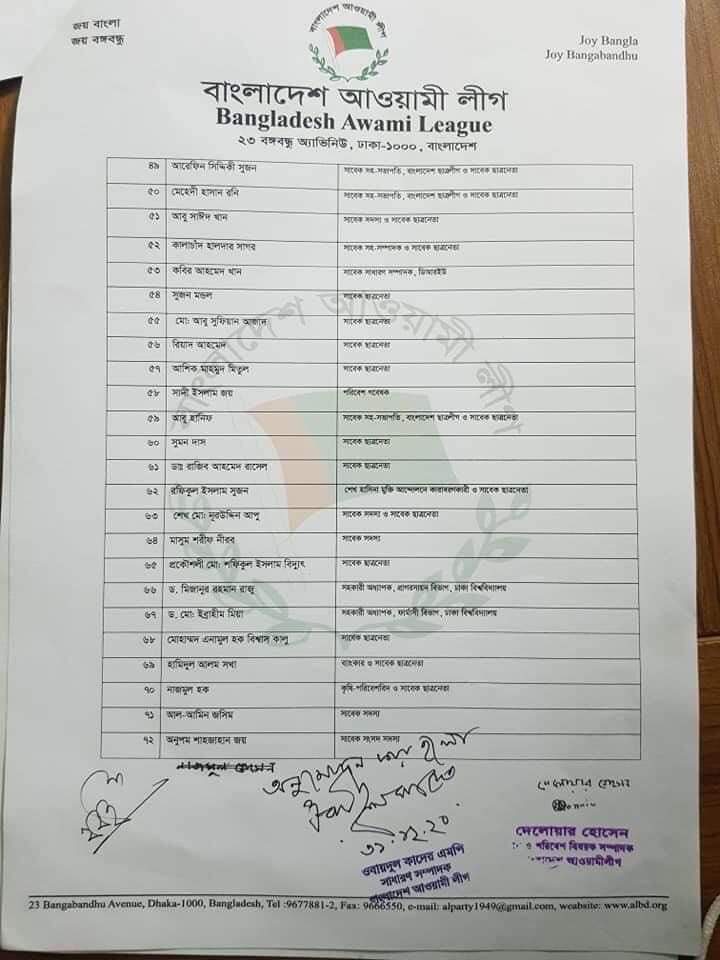 জয় বাংলা
জয় বঙ্গবন্ধু
বাংলাদেশ আওয়ামী লীগ
Joy Bangla
Joy Bangabandhu
বাংলাদেশ আওয়ামী লীগ
Bangladesh Awami League
২৩ বঙ্গবন্ধু অ্যাভিনিউ, ঢাকা-১০০০, বাংলাদেশ
৪৯ আরেফিন সিদ্দিকী সুজন সাবেক সহ-সভাপতি, বাংলাদেশ ছাত্রলীগ ও সাবেক ছাত্রনেতা
৫০ মেহেদী হাসান রনি সাবেক সহ-সভাপতি, বাংলাদেশ ছাত্রলীগ ও সাবেক ছাত্রনেতা
৫১ আবু সাঈদ খান সাবেক সদস্য ও সাবেক ছাত্রনেতা
৫২ কালাচাঁদ হালদার সাগর সাবেক সহ-সম্পাদক ও সাবেক ছাত্রনেতা
৫৩ কবির আহমেদ খান সাবেক সাধারণ সম্পাদক, ডিআরইউ
৫৪ সুজন মন্ডল সাবেক ছাত্রনেতা
৫৫ মো: আবু সুফিয়ান আজাদ সাবেক ছাত্রনেতা
৫৬ রিয়াদ আহমেদ সাবেক ছাত্রনেতা
৫৭ আশিক মাহমুদ মিতুল সাবেক ছাত্রনেতা
৫৮ সানী ইসলাম জয় পরিবেশ গবেষক
৫৯ আবু হানিফ সাবেক সহ-সভাপতি, বাংলাদেশ ছাত্রলীগ ও সাবেক ছাত্রনেতা
৬০ সুমন দাস সাবেক ছাত্রনেতা
৬১ ডাঃ রাজিব আহমেদ রাসেল সাবেক ছাত্রনেতা
৬২ রফিকুল ইসলাম সুজন শেখ হাসিনা মুক্তি আন্দোলনে কারাবরণকারী ও সাবেক ছাত্রনেতা
৬৩ শেখ মো: নূরউদ্দিন আপু সাবেক সদস্য ও সাবেক ছাত্রনেতা
৬৪ মাসুম শরীফ নীরব সাবেক সদস্য
৬৫ প্রকৌশলী মো: শফিকুল ইসলাম বিদ্যুৎ সাবেক ছাত্রনেতা
৬৬ ড. মিজানুর রহমান রাজু সহকারী অধ্যাপক, প্রাণরসায়ন বিভাগ, ঢাকা বিশ্ববিদ্যালয়
৬৭ ড. মো: ইব্রাহীম মিয়া সহকারী অধ্যাপক, ফার্মাসী বিভাগ, ঢাকা বিশ্ববিদ্যালয়
৬৮ মোহাম্মদ এনামুল হক বিশ্বাস কালু সাবেক ছাত্রনেতা
৬৯ হামিদুল আলম সখা ব্যাংকার ও সাবেক ছাত্রনেতা
৭০ নাজমুল হক কৃষি-পরিবেশবিদ ও সাবেক ছাত্রনেতা
৭১ আল-আমিন জসিম সাবেক সদস্য
৭২ অনুপম শাহজাহান জয় সাবেক সংসদ সদস্য
বাংলাদেশ আওয়ামী লীগ
৩১.১২.২০
দেলোয়ার হোসেন
ও পরিবেশ বিষয়ক সম্পাদক
আওয়ামীলীগ
ওবায়দুল কাদের এমপি
সাধারণ সম্পাদক
বাংলাদেশ আওয়ামী লীগ
23 Bangabandhu Avenue, Dhaka-1000, Bangladesh, Tel :9677881-2, Fax: 9666550, e-mail: alparty1949@gmail.com, weabsite: www.albd.org